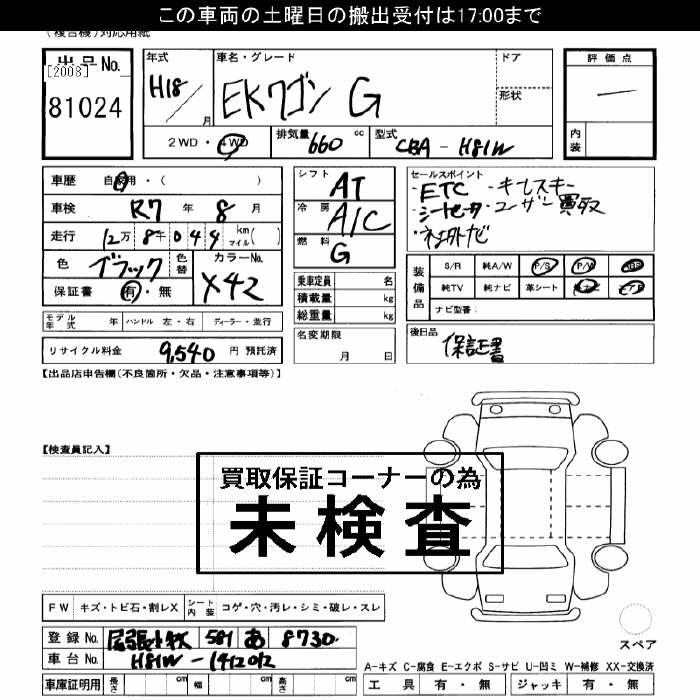 この車両の土曜日の搬出受付は17:00まで
(複合機)対応用紙
出品No.
[2008]
81024
年式 H18 / 月
車名・グレード EKワゴン G
ドア
形状
評価点
一
内装
2WD・4WD 排気量 660 cc 型式 CBA - H81W
車歴 自家用・( )
車検 R7 年 8 月
走行 12万 8千 0 4 4 km マイル( )
色 ブラック 色替 カラーNo. X42
保証書 有・無
モデル年式 年 ハンドル 左・右 ディーラー・並行
リサイクル料金 9,540 円 預託済
シフト AT
冷房 A/C
燃料 G
乗車定員 名
積載量 kg
総重量 kg
名変期限 月 日
セールスポイント
・ETC ・キーレスキー
・シートヒータ ・ユーザー買取
・社外ナビ
装備品 S/R 純A/W P/S P/W ABS
純TV 純ナビ 革シート
ナビ型番:
後日品
保証書
【出品店申告欄(不良箇所・欠品・注意事項等)】
【検査員記入】
買取保証コーナーの為
未検査
FW キズ・トビ石・割レX シート内装 コゲ・穴・汚レ・シミ・破レ・スレ
登録No. 尾張小牧 581 あ 8730
車台No. H81W - 1412012
車庫証明用 長さ cm 幅 cm 高さ cm
スペア
A-キズ C-腐食 E-エクボ S-サビ U-凹ミ W-補修 XX-交換済
工具 有・無 ジャッキ 有・無